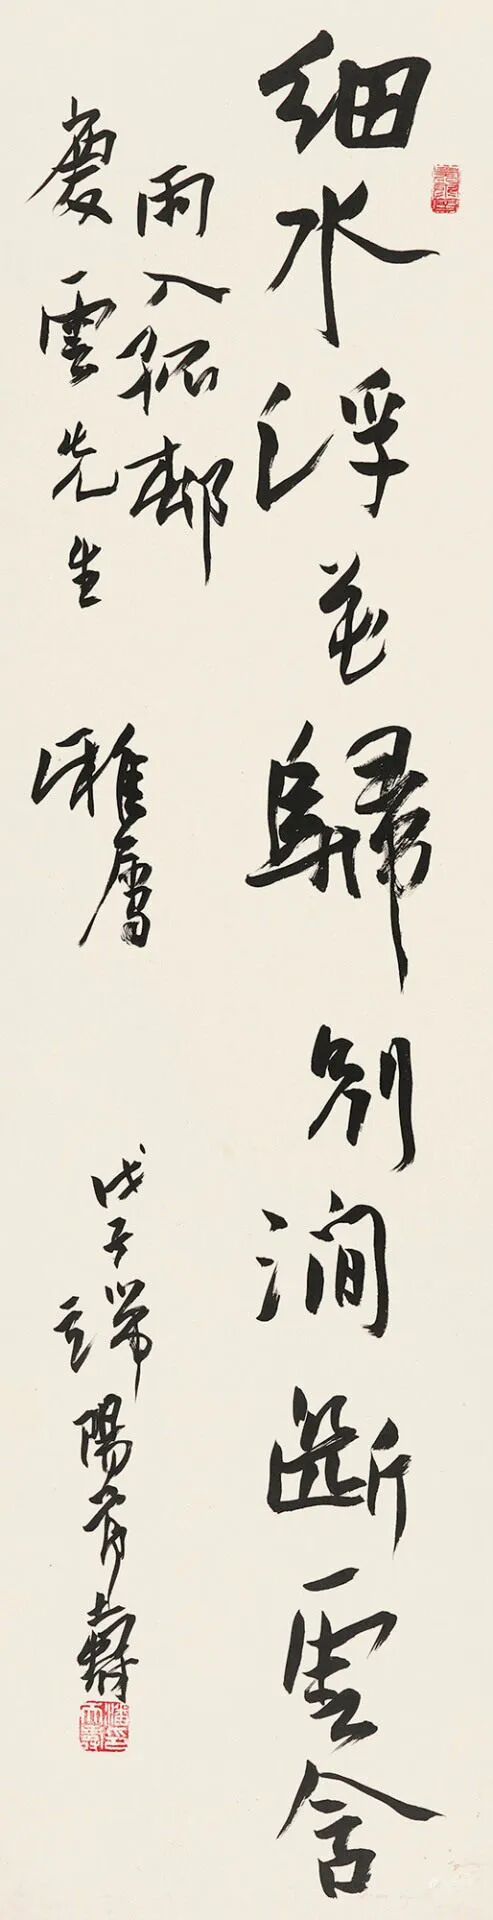 細水浮花歸別澗斷雲含
雨入孤邨
慶雲先生 雅屬 戊子端陽 壽